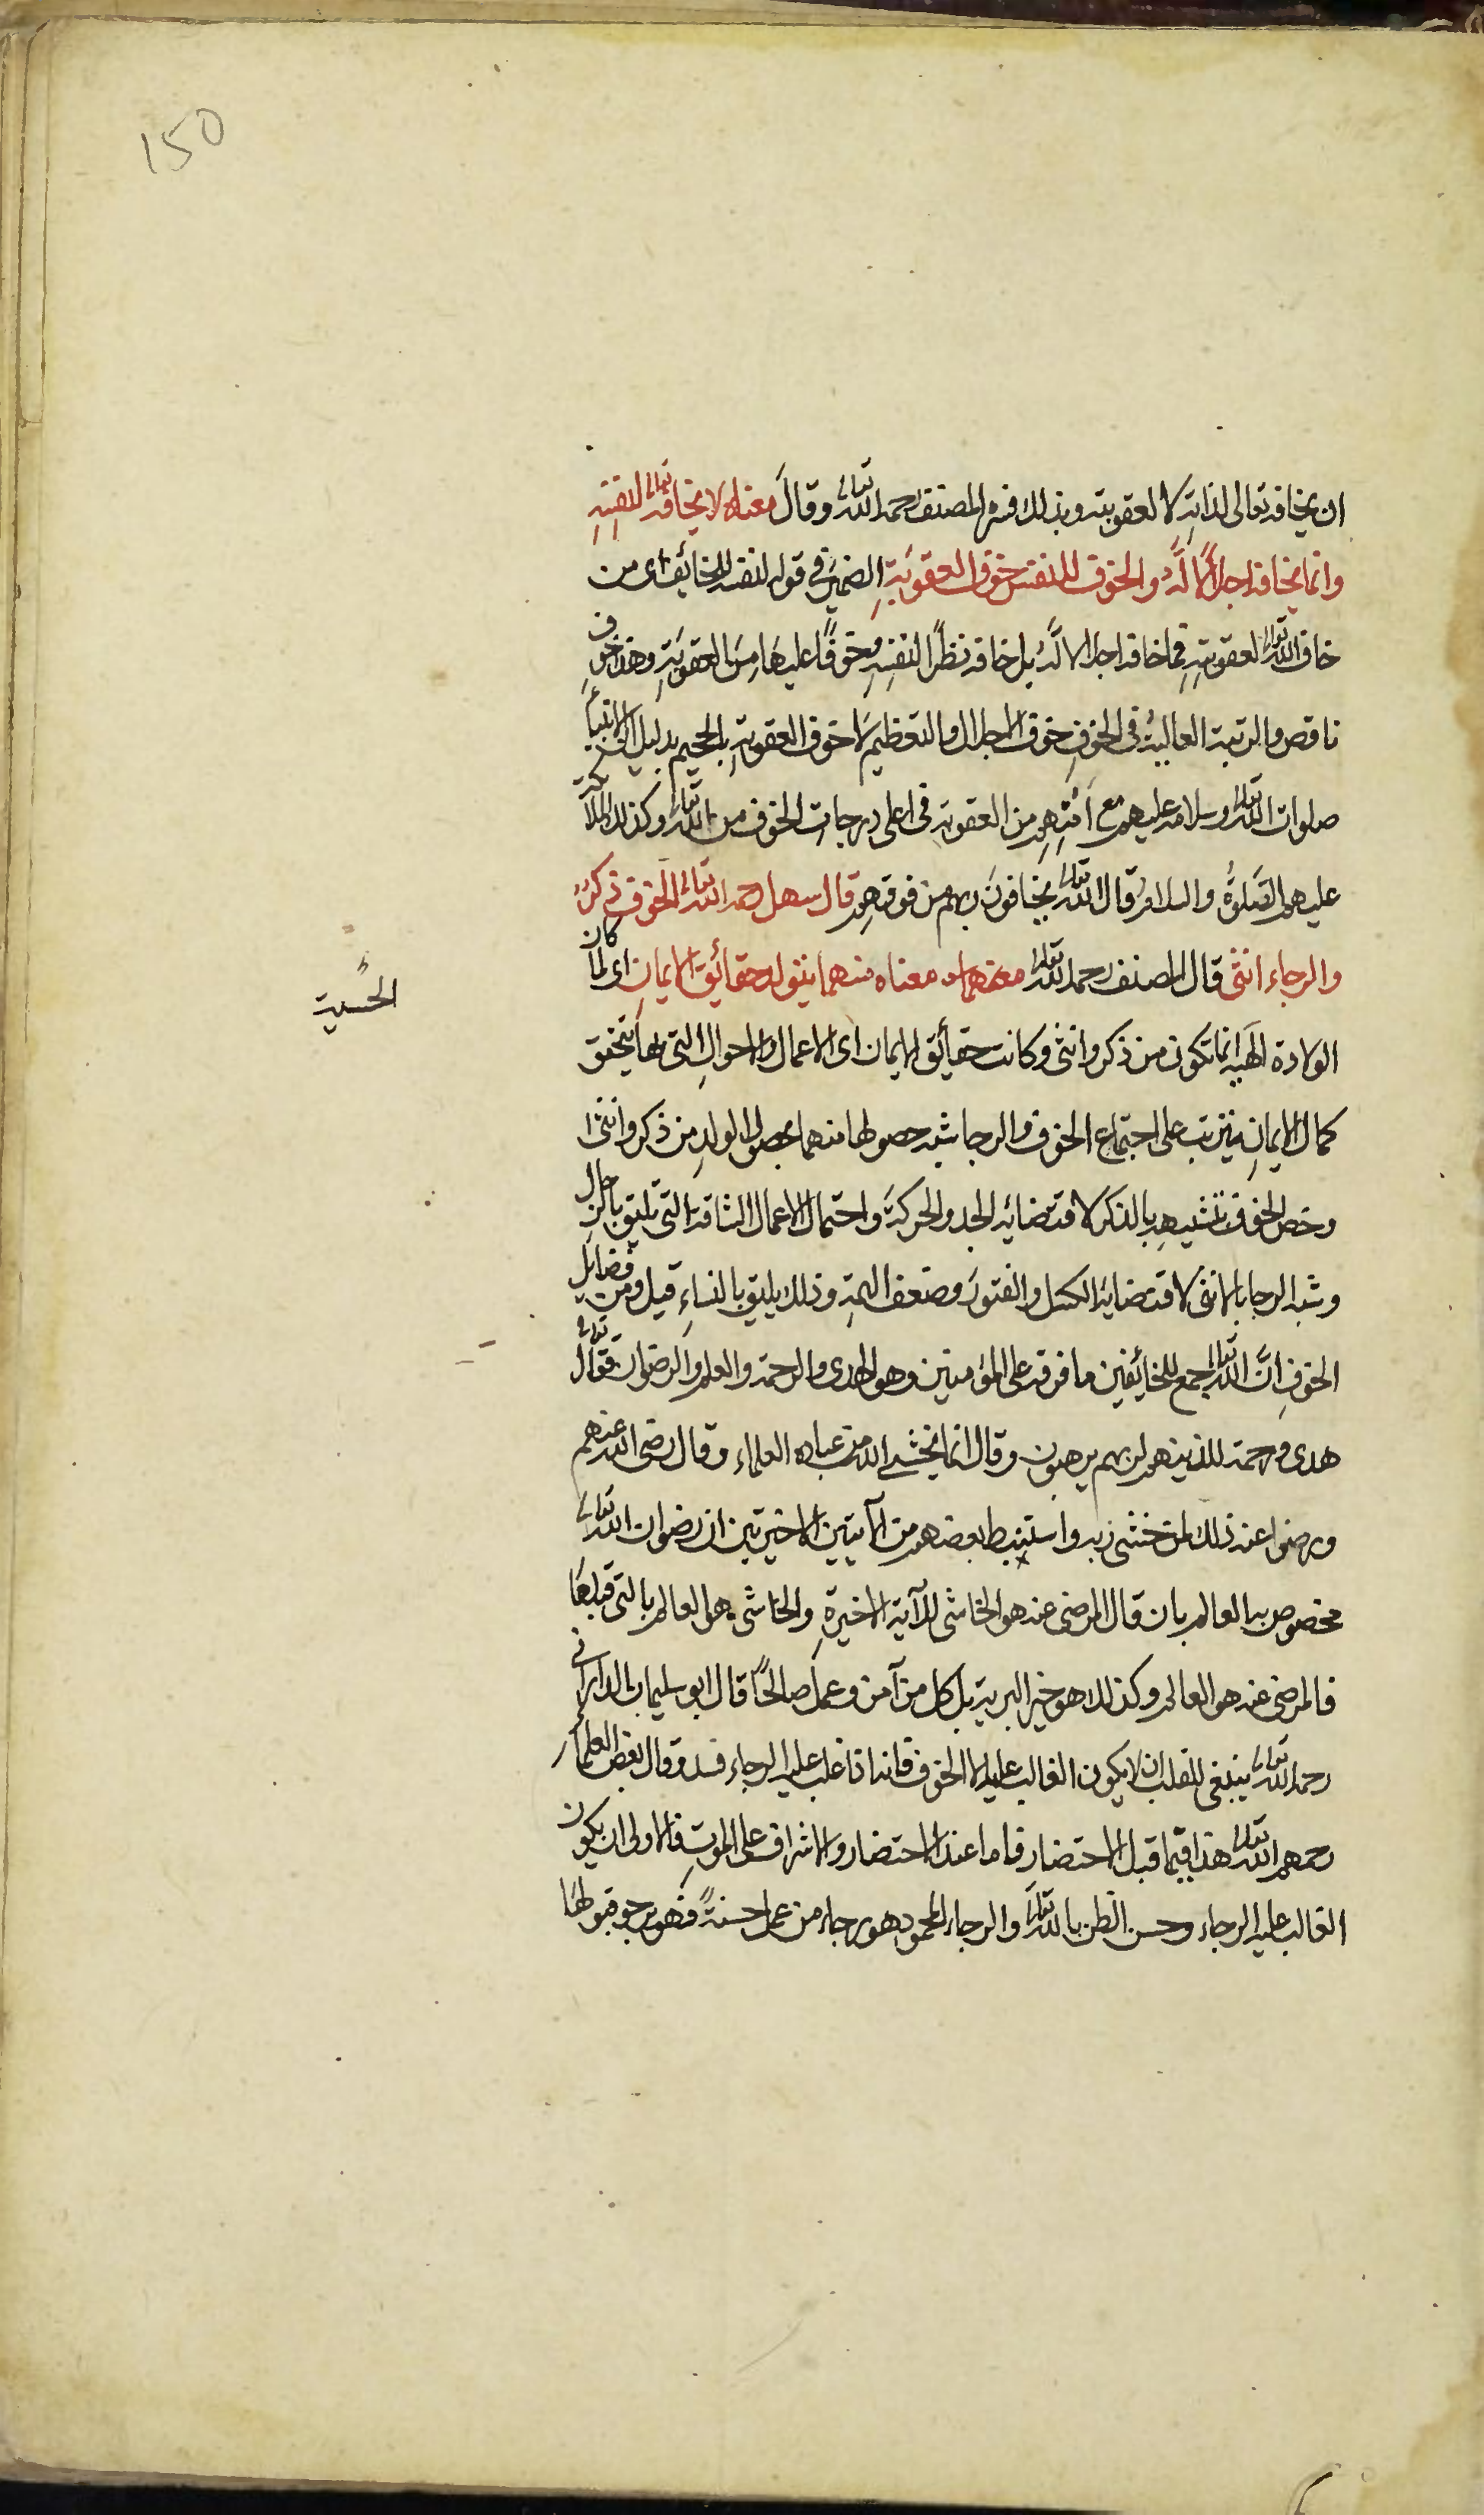 150
ان يخافه تعالى لذاته لا لعقوبته وبذلك فسره المصنف رحمه الله تعالى وقال معناه لا يخافه تعالى لنفسه
وانما يخافه اجلالًا له والخوف للنفس خوف العقوبة الضمير في قوله لنفسه للخائف اى من
خاف الله تعالى لعقوبته فما خافه اجلالا له بل خافه نظرًا لنفسه وخوفًا عليها من العقوبة وهذا خوف
ناقص والرتبة العالية في الخوف خوف الاجلال والتعظيم لا خوف العقوبة بالجحيم بدليل ان الانبياء
صلوات الله تعالى وسلامه عليهم مع أمنهم من العقوبة في اعلى درجات الخوف من الله تعالى وكذلك الملائكة
عليهم الصلوة والسلام قال الله تعالى يخافون ربهم من فوقهم قال سهل رحمه الله تعالى الخوف ذكر
والرجاء انثى قال المصنف رحمه الله تعالى معناه منهما يتولد حقائق الايمان اى لما كان
الولادة الحسية انما تكون من ذكر وانثى وكانت حقائق الايمان اى الاعمال والاحوال التي بها يتحقق
الحسّية
كمال الايمان يترتب على اجتماع الخوف والرجا شبه حصولها منهما بحصول الولد من ذكر وانثى
وخص الخوف بتشبيهه بالذكر لاقتضائه الجد والحركة واحتمال الاعمال الشاقة التي تليق بالرجال
وشبه الرجا بالانثى لاقتضائه الكسل والفتور وضعف الهمة وذلك يليق بالنساء قيل ومن فضائل
الخوف انّ الله تعالى جمع للخائفين ما فرقه على المؤمنين وهو الهدى والرحمة والعلم والرضوان فقال تعالى
هدى ورحمة للذين هم لربهم يرهبون وقال انما يخشى الله من عباده العلماء وقال رضى الله عنهم
ورضوا عنه ذلك لمن خشى ربه واستنبط بعضهم من الآيتين الاخيرتين ان رضوان الله تعالى
مخصوص بالعالم بان قال المرضى عنه هو الخاشى للآية الاخيرة والخاشى هو العالم بالتي قبلها
فالمرضى عنه هو العالم وكذلك هو خير البرية بل كل من آمن وعمل صالحًا قال ابو سليمان الدارانى
رحمه الله تعالى ينبغى للقلب ان لا يكون الغالب عليه الا الخوف فانه اذا غلب عليه الرجاء فسد وقال بعض العلماء
رحمهم الله تعالى هذا فيما قبل الاحتضار فاما عند الاحتضار والاشراف على الموت فالاولى ان يكون
الغالب عليه الرجاء وحسن الظن بالله تعالى والرجاء المحمود هو رجاء من عمل حسنةً فهو يرجو قبولها